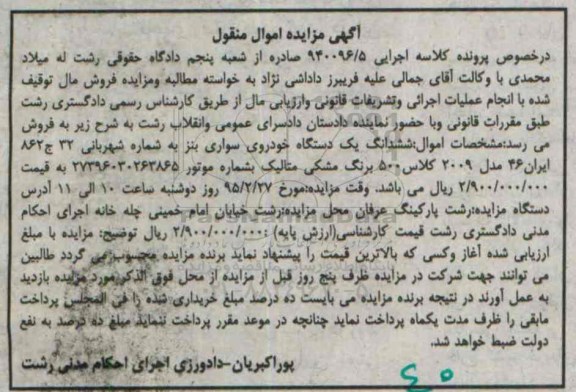 آگهی مزایده اموال منقول
درخصوص پرونده کلاسه اجرایی ۹۴۰۰۹۶/۵ صادره از شعبه پنجم دادگاه حقوقی رشت له میلاد
محمدی با وکالت آقای جمالی علیه فریبرز داداشی نژاد به خواسته مطالبه ومزایده فروش مال توقیف
شده با انجام عملیات اجرائی وتشریفات قانونی وارزیابی مال از طریق کارشناس رسمی دادگستری رشت
طبق مقررات قانونی وبا حضور نماینده دادستان دادسرای عمومی وانقلاب رشت به شرح زیر به فروش
می رسد:مشخصات اموال:ششدانگ یک دستگاه خودروی سواری بنز به شماره شهربانی ۳۲ ج۸۶۲
ایران۴۶ مدل ۲۰۰۹ کلاس۵۰۰ برنگ مشکی متالیک بشماره موتور ۲۷۳۹۶۰۳۰۲۶۳۸۶۵ به قیمت
۲/۹۰۰/۰۰۰/۰۰۰ ریال می باشد. وقت مزایده:مورخ ۹۵/۲/۲۷ روز دوشنبه ساعت ۱۰ الی ۱۱ آدرس
دستگاه مزایده:رشت پارکینگ عرفان محل مزایده:رشت خیابان امام خمینی چله خانه اجرای احکام
مدنی دادگستری رشت قیمت کارشناسی(ارزش پایه) :۲/۹۰۰/۰۰۰/۰۰۰ ریال توضیح: مزایده با مبلغ
ارزیابی شده آغاز وکسی که بالاترین قیمت را پیشنهاد نماید برنده مزایده محسوب می گردد طالبین
می توانند جهت شرکت در مزایده ظرف پنج روز قبل از مزایده از محل فوق الذکر مورد مزایده بازدید
به عمل آورند در نتیجه برنده مزایده می بایست ده درصد مبلغ خریداری شده را فی المجلس پرداخت
مابقی را ظرف مدت یکماه پرداخت نماید چنانچه در موعد مقرر پرداخت ننماید مبلغ ده درصد به نفع
دولت ضبط خواهد شد.
پوراکبریان-دادورزی اجرای احکام مدنی رشت